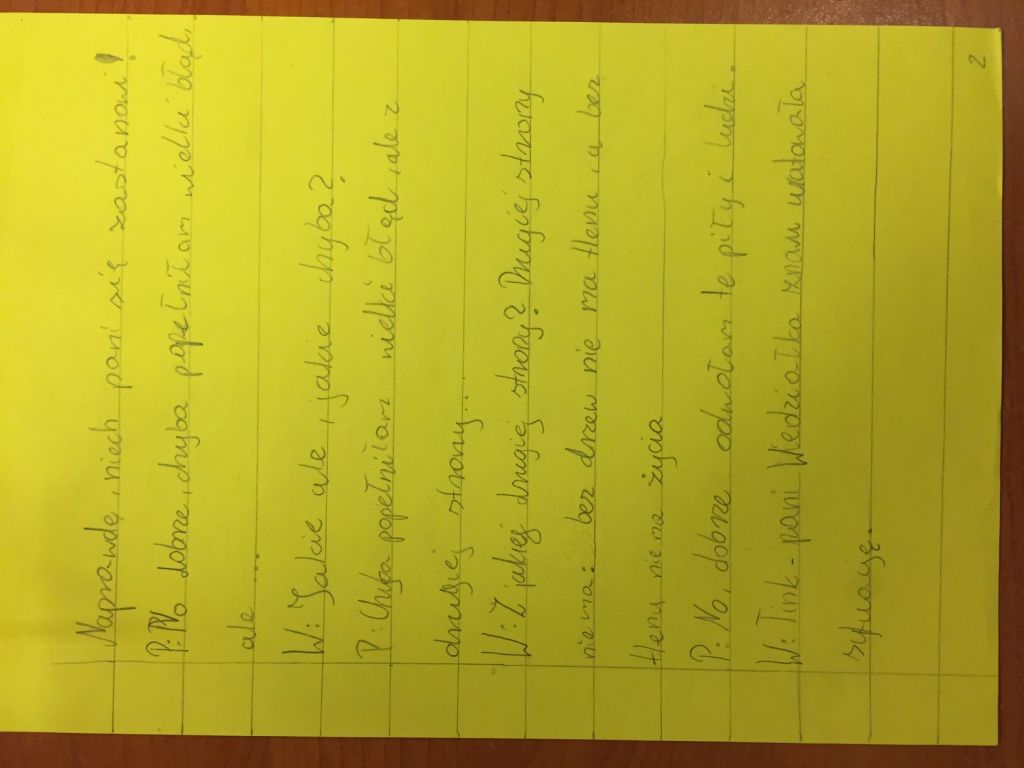 Naprawdę, niech pani się zastanowi!
P: No dobrze, chyba popełniłam wielki błąd,
ale....
W: Jakie ale, jakie chyba?
P: Chyba popełniłam wielki błąd, ale z
drugiej strony...
W: Z jakiej drugiej strony? Drugiej strony
nie ma: bez drzew nie ma tlenu, a bez
tlenu nie ma życia
P: No, dobrze odwołam te piły i ludzi.
W: Tink-pani Wiedziałka znów uratowała
sytuację.
2